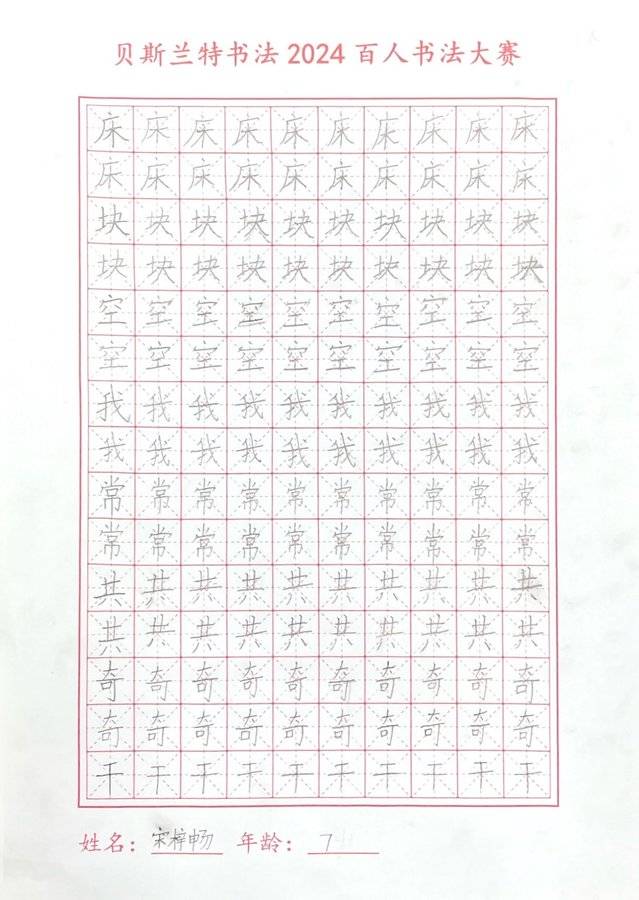 贝斯兰特书法2024百人书法大赛
床床床床床床床床床床
床床床床床床床床床床
块块块块块块块块块块
块块块块块块块块块块
空空空空空空空空空空
空空空空空空空空空空
我我我我我我我我我我
我我我我我我我我我我
常常常常常常常常常常
常常常常常常常常常常
共共共共共共共共共共
共共共共共共共共共共
奇奇奇奇奇奇奇奇奇奇
奇奇奇奇奇奇奇奇奇奇
干干干干干干干干干干
姓名：宋梓畅 年龄：7